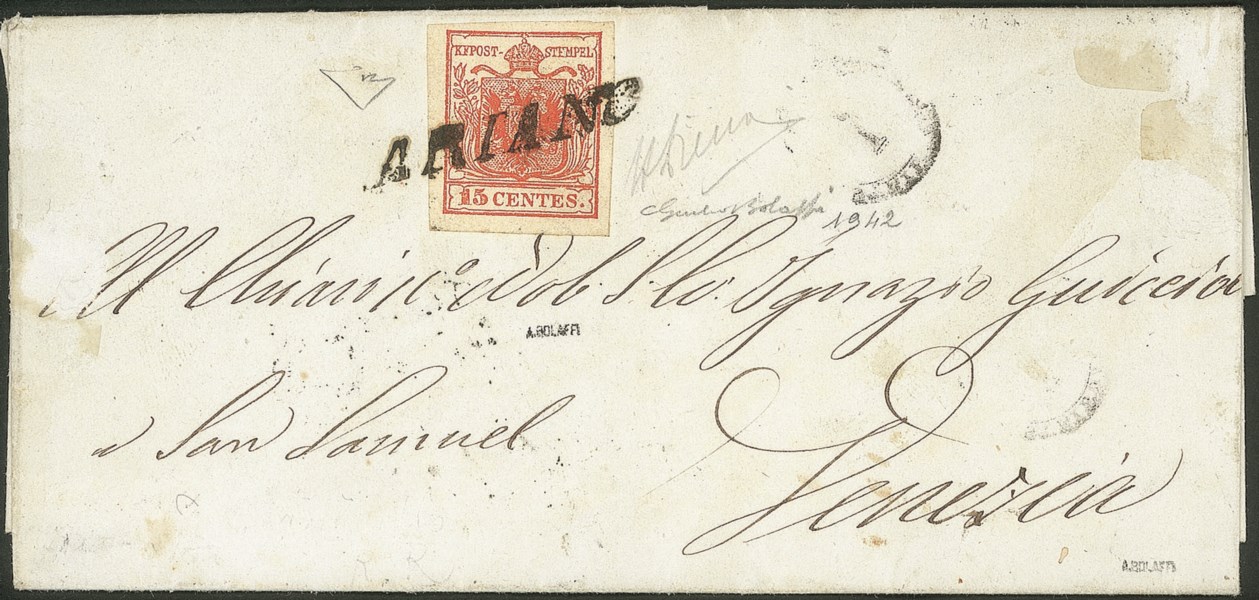 KKPOST-STEMPEL
ARIANO
15 CENTES.
ADiena
Giulio Bolaffi
1942
Al Chiariss.o Nob. S.
Ignazio Guiccia
A.BOLAFFI
a San Samuel
Venezia
A.BOLAFFI